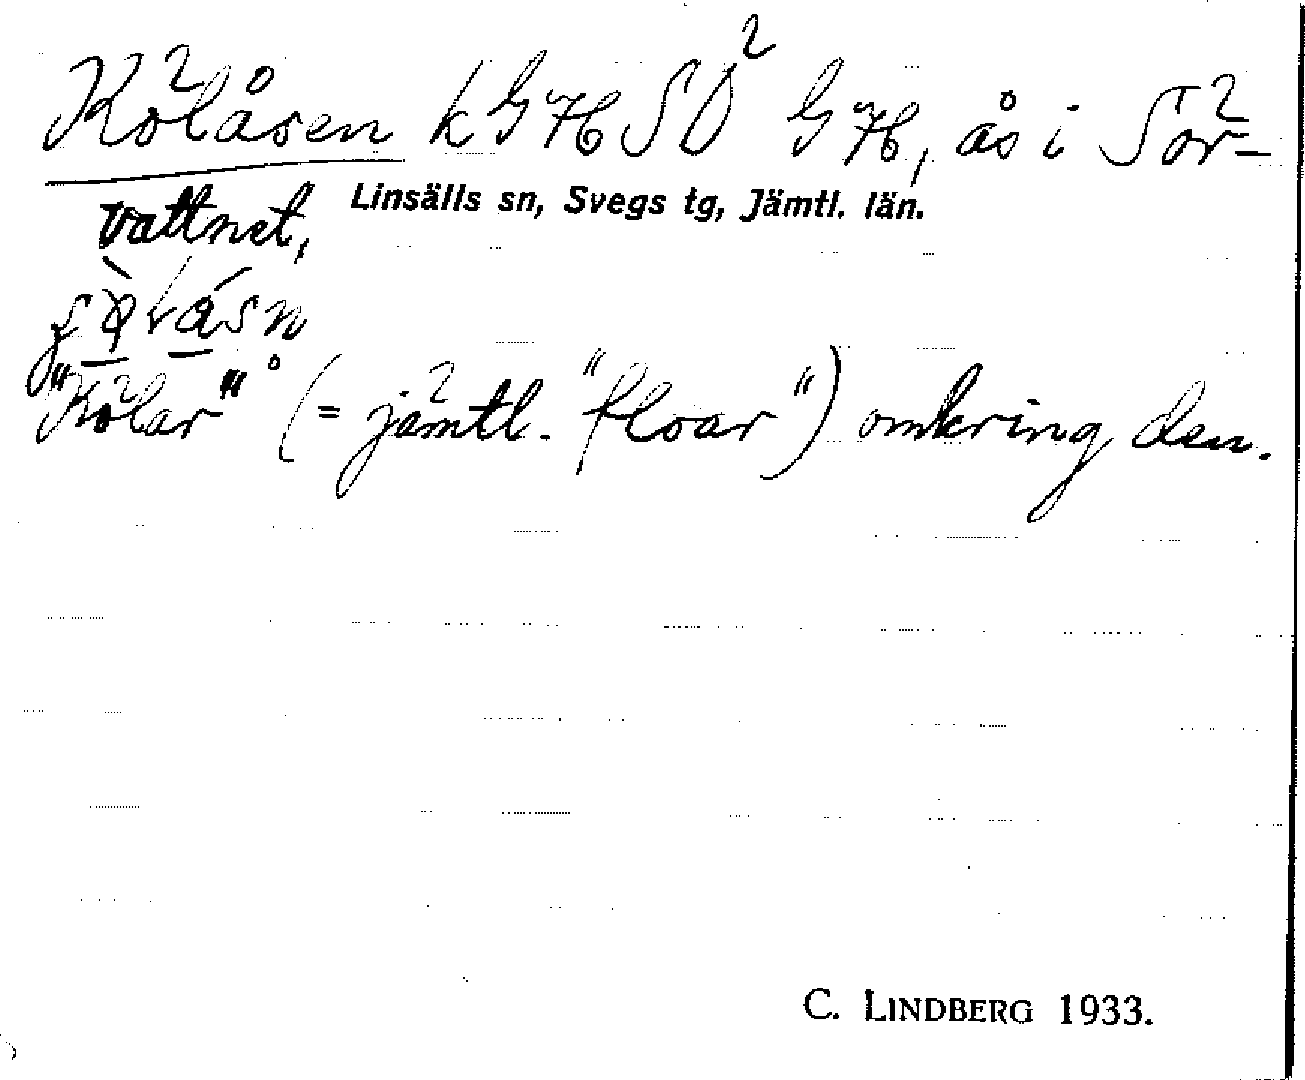 Kölåsen k G H SÖ G H, ås i Sör-
vattnet,
Linsälls sn, Svegs tg, Jämtl. län.
"Kölar" (= jämtl. "floar") omkring den.
C. LINDBERG 1933.